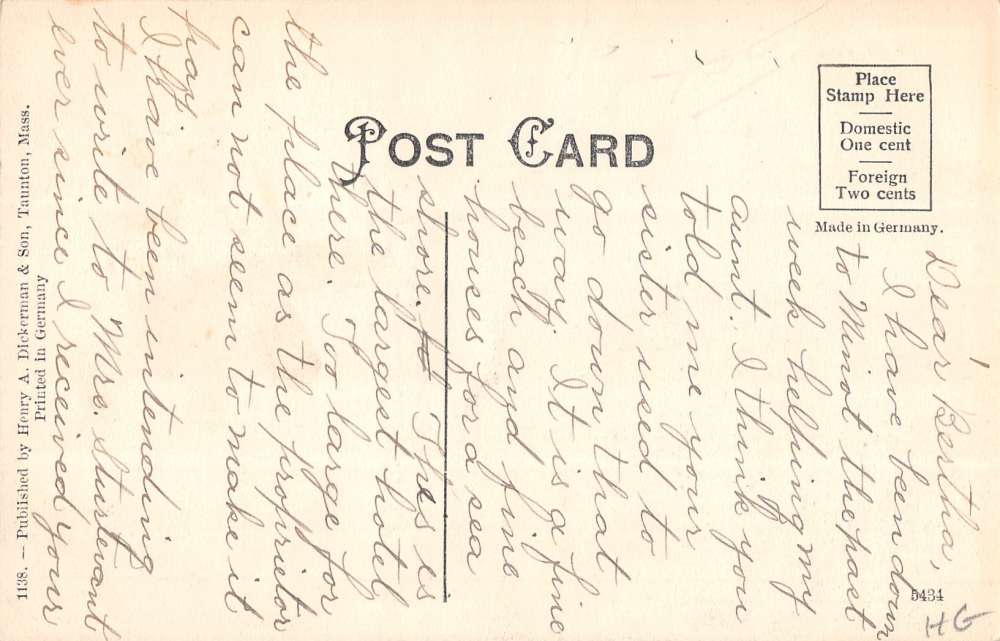 POST CARD
Place
Stamp Here
Domestic
One cent
Foreign
Two cents
Made in Germany.
1138. — Published by Henry A. Dickerman & Son, Taunton, Mass.
Printed in Germany
5434
HG
Dear Bertha,
I have been down
to Minot the past
week helping my
aunt. I think you
told me your
sister used to
go down that
way. It is a fine
beach and fine
houses for a sea
shore. This is
the largest hotel
there. Too large for
the place as the proprietor
can not seem to make it
pay.
I have been intending
to write to Mrs. Sturtevant
ever since I received your